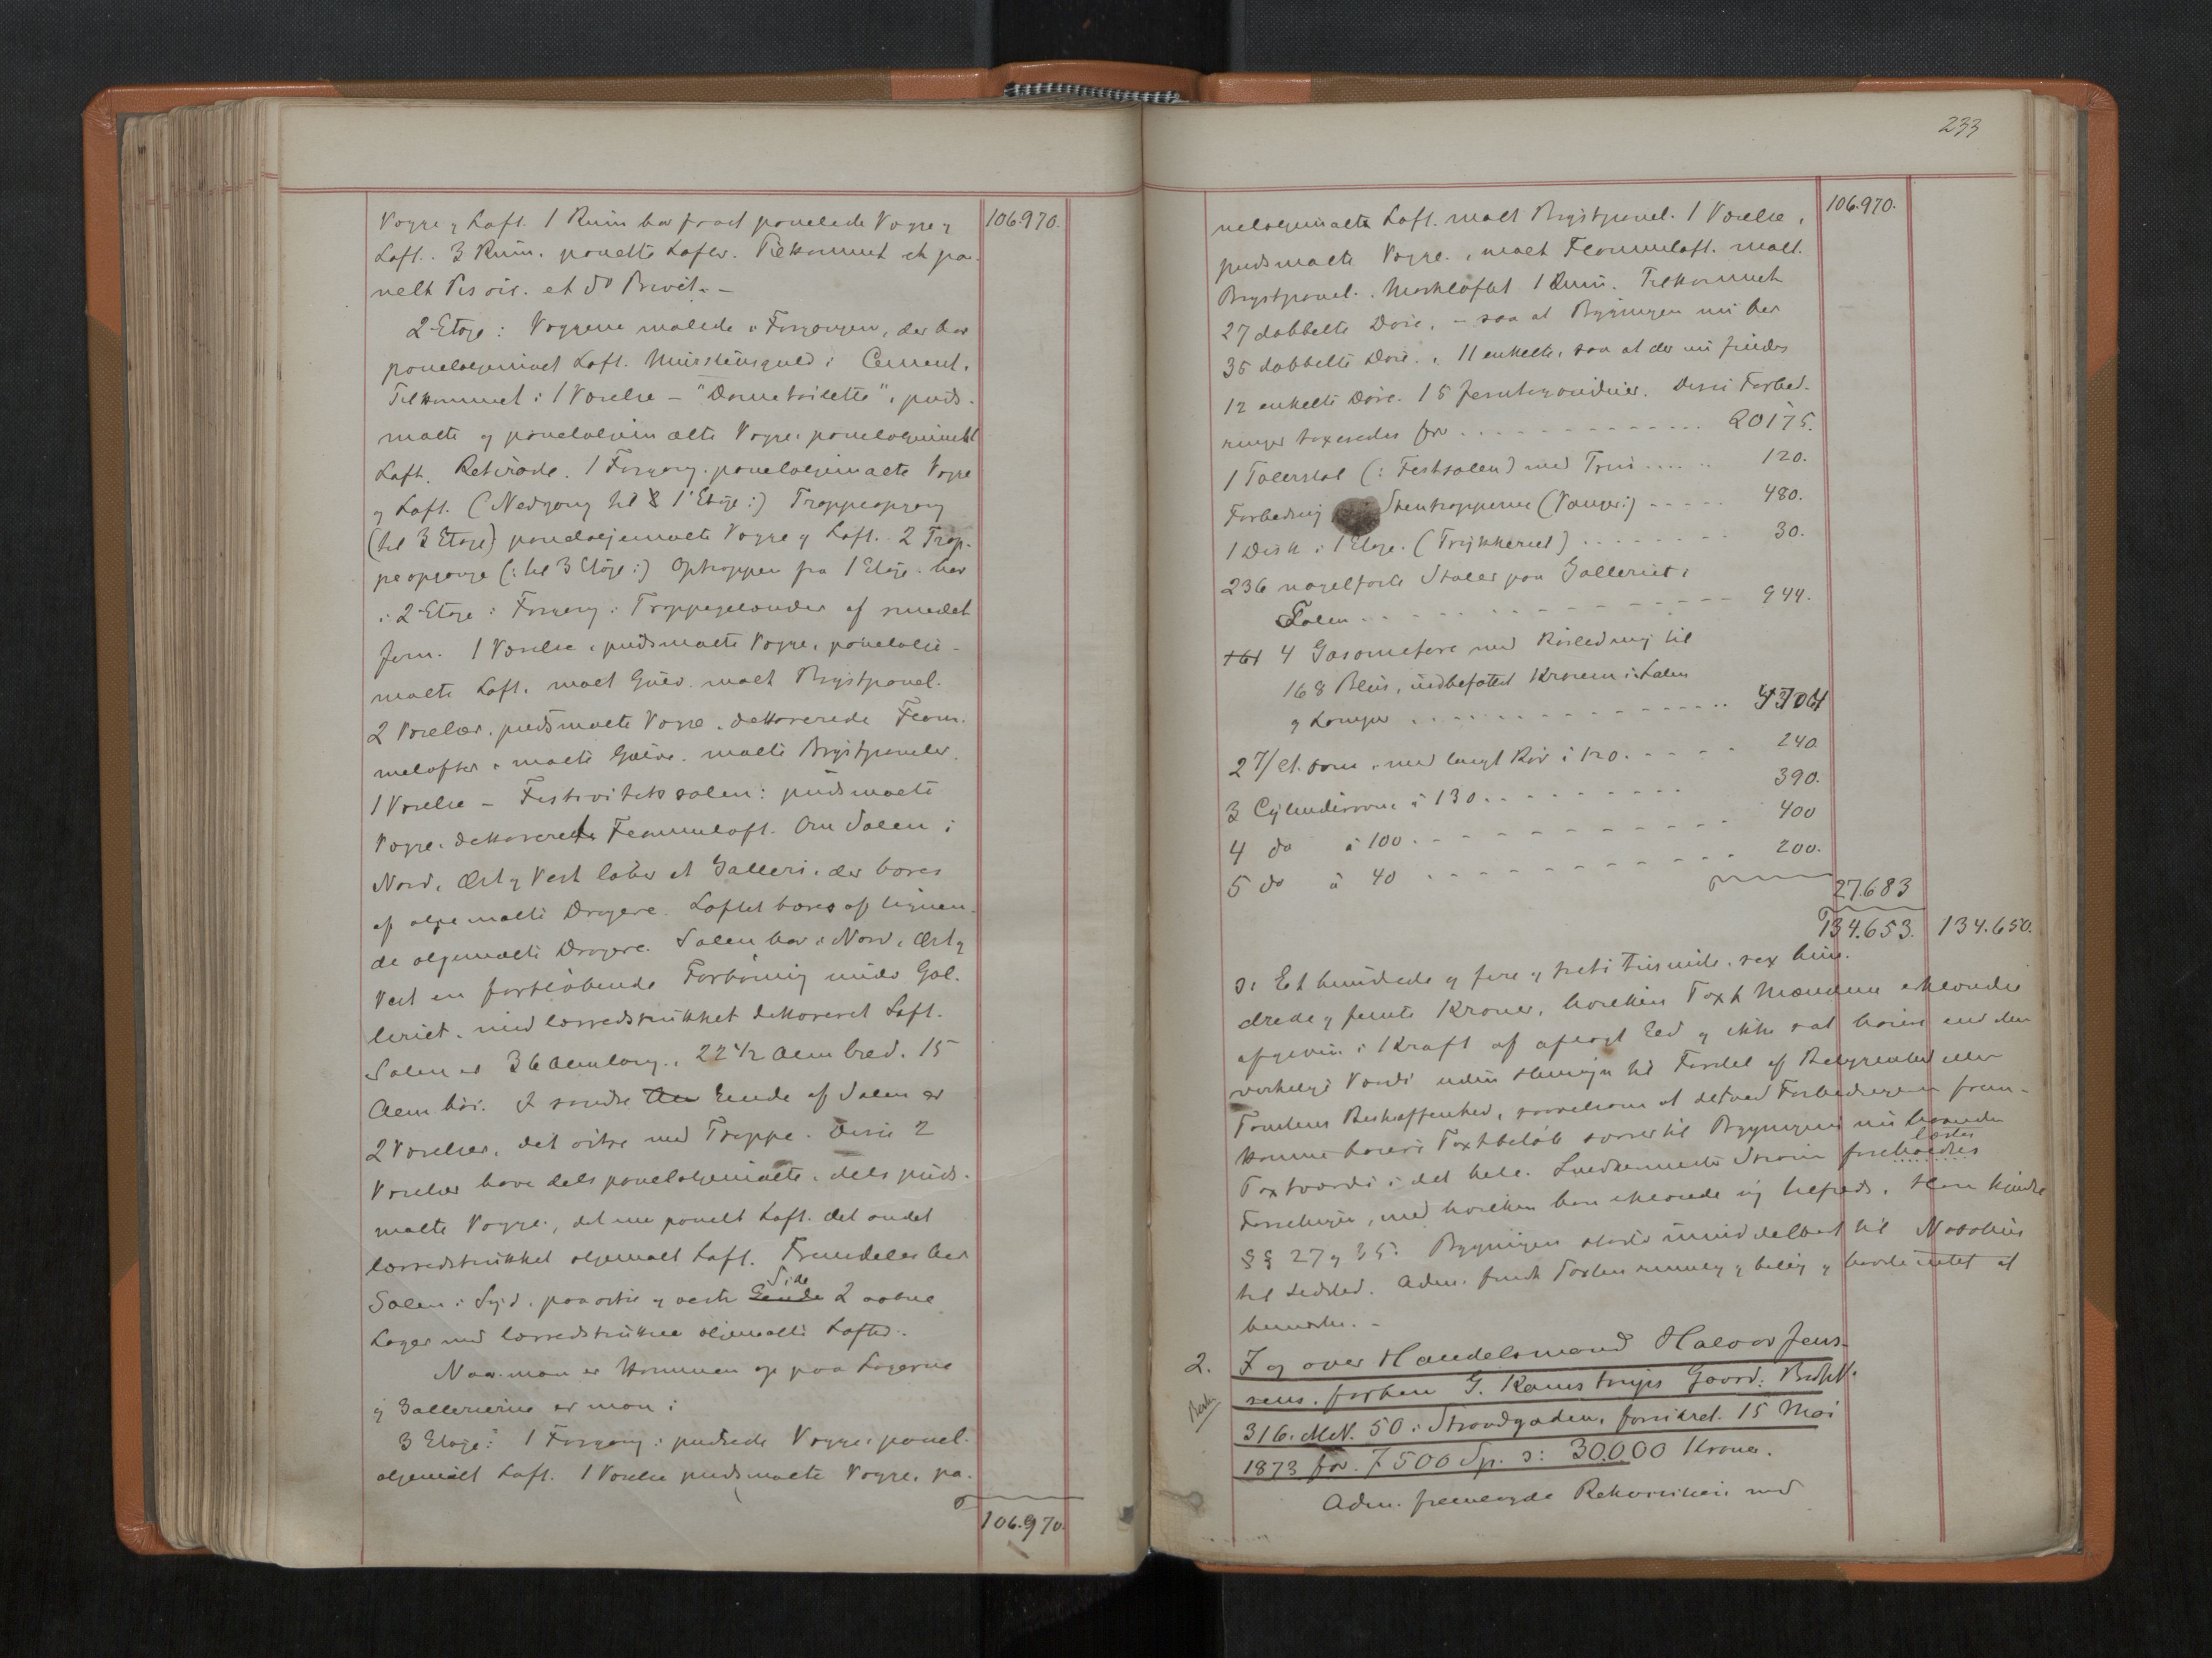 Vægge & Loft. 1 Rum har fæect panelede Vægge &
Loft. 3 Rum. panelte Lofter. Tilkommet et pa-
nelt Pissoir. et do Privet. -
2 Etage: Væggene malede i Forgangen, der har
paneloljemalet Loft. Murstensgulv i Cement.
Tilkommet: 1 Værelse - "Dametoilette", puds-
malte og paneloljemalte Vægge, paneloljemalt
Loft. Retirade. 1 Forgang. paneloljemalte Vægge
& Loft. (Nedgang til 1 Etage:) Trappeopgang
(til 3 Etage) paneloljemalte Vægge & Loft. 2 Trap-
peopgange (: til 3 Etage:) Optrappen fra 1 Etage har
i 2 Etage: Forgang: Trappegelænder af smedet
Jern. 1 Værelse, pudsmalte Vægge, panelolje-
malte Loft, malt Gulv. malt Brystpanel.
2 Værelser. pudsmalte Vægge. dekorerede Flam-
melofter, malte Gulve. malte Brystpaneler.
1 Værelse - Festivitetssalen: pudsmalte
Vægge. dekoreret Flammeloft. Om Salen i
Nord, Øst & Vest løber et Galleri, der bæres
af oljemalte Dragere. Loftet bæres af lignen-
de oljemalte Dragere. Salen har i Nord, Øst &
Vest en fortløbende Forhøining under Gal-
leriet, med lærredstrukket dekoreret Loft.
Salen er 36 Alen lang, 22 1/2 Alen bred. 15
Alen høi. I søndre Ende af Salen er
2 Værelser, det østre med Trappe. Disse 2
Værelser have dels paneloljemalte, dels puds-
malte Vægge, det ene panelt Loft. det andet
lærredstrukket oljemalt Loft. Fremdeles har
Side
Salen i Syd, paa østre & vestre Ende 2 aabne
Loger med lærredstrukne oljemalte Lofter.
Naar man er kommen op paa Logerne
& Gallerierne er man i
3 Etage: 1 Forgang: pudsede Vægge, panel-
oljemalt Loft. 1 Værelse pudsmalte Vægge, pa-
106.970.
106.970.
233
106.970.
neloljemalte Loft. malt Brystpanel. 1 Værelse,
pudsmalte Vægge, malt Flammeloft. malt
Brystpanel. Mørkloftet 1 Rum. Tilkommet
27 dobbelte Døre, - saa at Bygningen nu har
35 dobbelte Døre, 11 enkelte, saa at der nu findes
12 enkelte Døre. 15 Jerntrævinduer. Disse Forbed-
ringer taxeredes for . . . . 20175.
1 Talerstol (: Festsalen) med Trin . . . . 120.
Forbedring Stentrapperne (Vanger:) . . . . 480.
1 Disk i 1 Etage. (Trykkeriet) . . . . 30.
236 nagelfaste Stoler paa Galleriet i
Salen . . . . 944.
4 Gasometere med Rørledning til
168 Blus, indbefattet Kronen i Salen
& Lamper . . . .
2 7/et. Ovne, med langt Rør à 120 . . . . 240.
3 Cylinderovne à 130 . . . . 390.
4 do à 100 . . . . 400
5 do à 40 . . . . 200.
27.683
134.653. 134.650.
ɔ: Et hundrede & fire & treti Tusinde, sex hun-
drede & femti Kroner, hvilken Taxt Mændene erklærede
afgiven i Kraft af aflagt Ed & ikke sat høiere end den
virkelige Værdi uden Hensyn til Fordel af Beliggenhed eller
Tomtens Beskaffenhed, saavelsom at det ved Forbedringerne frem-
komne høiere Taxtbeløb svarer til Bygningens nu havende
læstes
Taxtværdi i det hele. Snedkermester Strøm foreholdtes
Forretningen, med hvilken han erklærede sig tilfreds. Han kjendte
§§ 27 & 35. Bygningen stødte umiddelbart til Nabohus
til Ildsted. Adm. fandt Taxten rimelig & billig & havde intet at
bemærke. -
2. I og over Handelsmand Halvor Jens-
sens, forhen G. Kamstrups Gaard: Brdpl.
316. M.N. 50 i Strandgaden, forsikret 15 Mai
1873 for 7500 Sp. ɔ: 30.000 Kroner.
Adm. fremlagde Rekvisition med